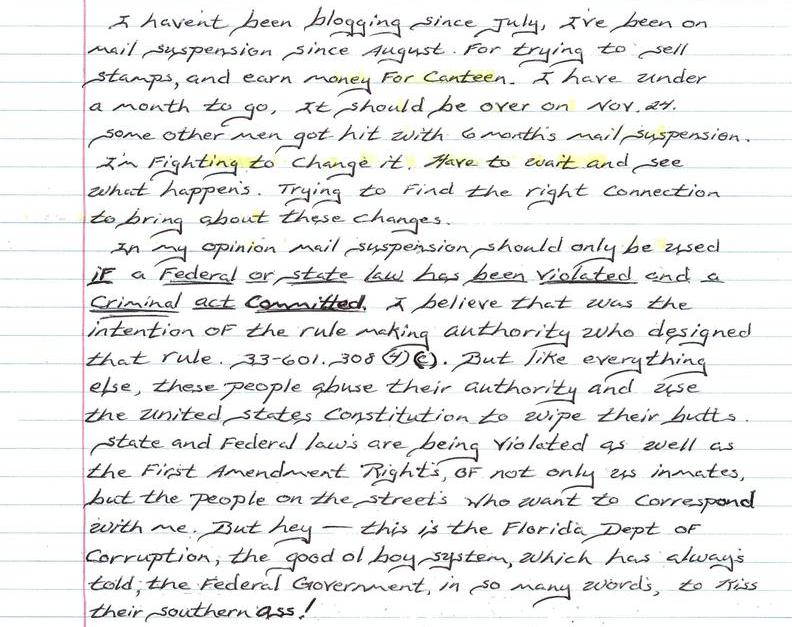 I havent been blogging since July, I've been on
mail suspension since August. For trying to sell
stamps, and earn money For Canteen. I have under
a month to go, It should be over on Nov. 24.
some other men got hit with 6 months mail suspension.
I'm Fighting to change it. Have to wait and see
what happen's. Trying to Find the right Connection
to bring about these changes.
In my opinion mail suspension should only be used
iF a Federal or state law has been violated and a
Criminal act Committed. I believe that was the
intention OF the rule making authority who designed
that rule. 33-601.308 (4)(c). But like everything
else, these people abuse their authority and use
the United States Constitution to wipe their butts.
State and Federal law's are being violated as well as
the First Amendment Right's, OF not only us inmates,
but the people on the street's who want to correspond
with me. But hey — this is the Florida Dept of
Corruption, the good ol boy system, which has always
told, the Federal Government, in so many words, to Kiss
their southern ass!